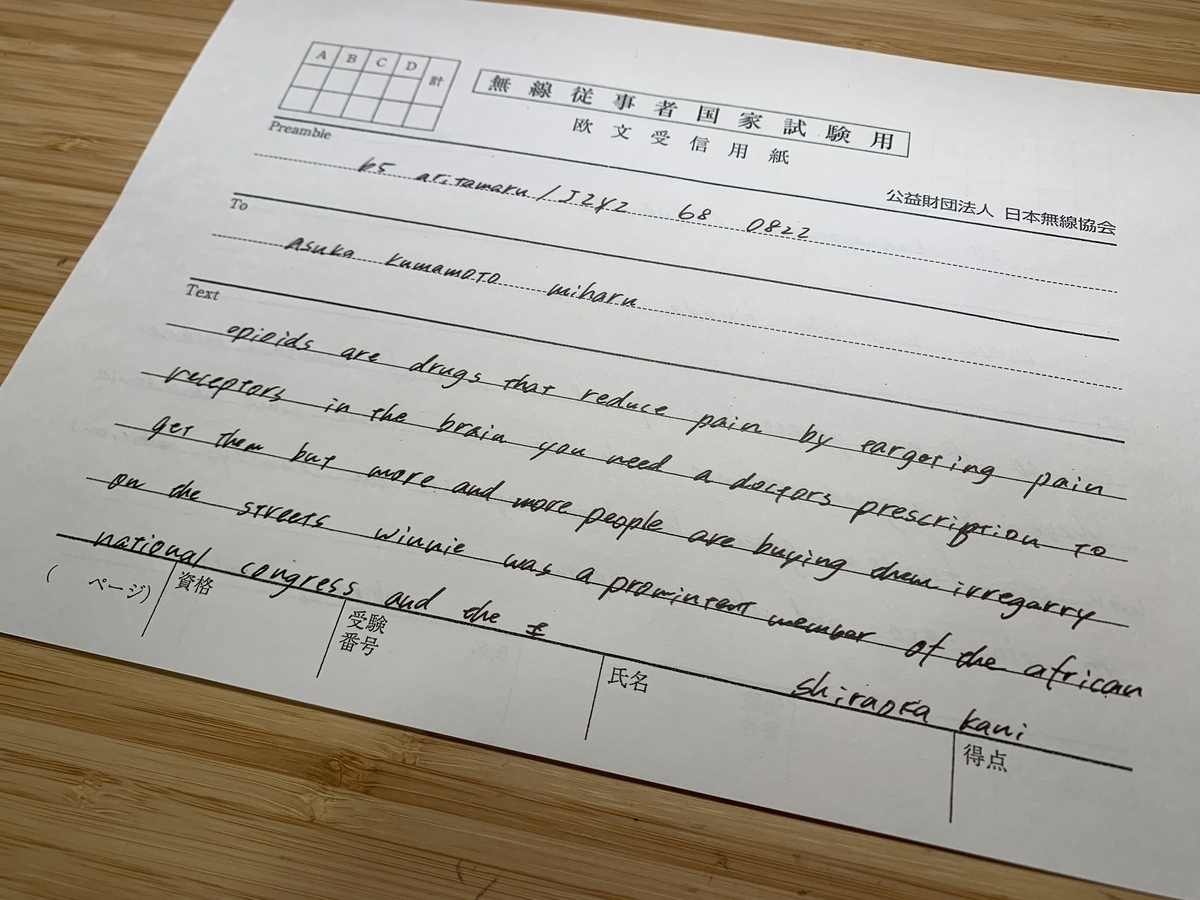 A B C D 計
無線従事者国家試験用
欧文受信用紙
公益財団法人 日本無線協会
Preamble
65 aritamaru/JZYZ 68 0822
To
asuka kumamoto miharu
Text
opioids are drugs that reduce pain by targeting pain
receptors in the brain you need a doctors prescription to
get them but more and more people are buying them irregarry
on the streets winnie was a prominent member of the african
national congress and the
shiraoka kani
( ページ)
資格
受験
番号
氏名
得点